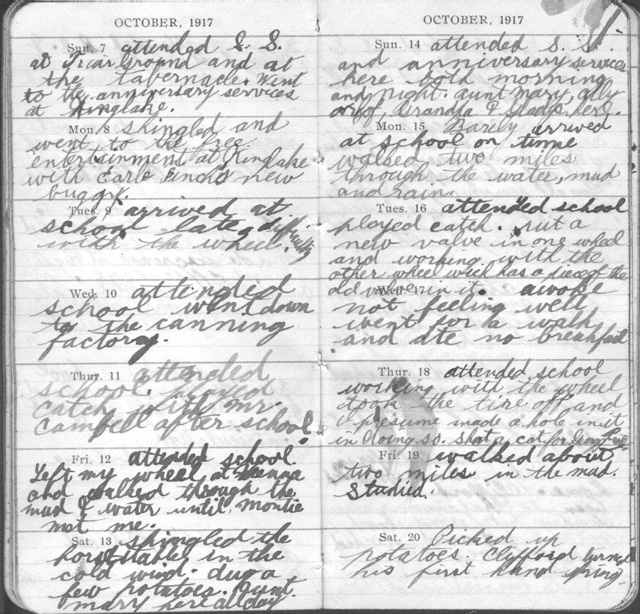 OCTOBER, 1917
Sun. 7 attended S. S.
at Fair Ground and at
the tabernacle. Went
to the anniversary services
at Kinglake.
Mon. 8 shingled and
went to the free
entertainment at Kinglake
with Carl new
buggy.
Tues. 9 arrived at
school late, difficulty
with the wheel.
Wed. 10 attended
school went down
to the canning
factory.
Thur. 11 attended
school. Played
catch with mr.
Campbell after school.
Fri. 12 attended school.
Left my wheel at
and walked through the
mud & water until montie
met me.
Sat. 13 shingled the
horsestable in the
cold wind. dug a
few potatoes. Aunt
mary here all day
OCTOBER, 1917
Sun. 14 attended S. S.
and anniversary services
here both morning
and night. aunt mary, ally
Grandpa & Gladys here.
Mon. 15 Barely arrived
at school on time
walked two miles
through the water, mud
and rain.
Tues. 16 attended school
played catch. put a
new valve in one wheel
and working with the
other wheel wich has a piece of the
old valve in it.
Wed. 17 awoke
not feeling well
went for a walk
and ate no breakfast
Thur. 18 attended school
working with the wheel
took the tire off and
I presume made a hole in it
in doing so. Shot a cat for
Fri. 19 walked about
two miles in the mud.
Studied.
Sat. 20 Picked up
potatoes. Clifford
his first hand spring